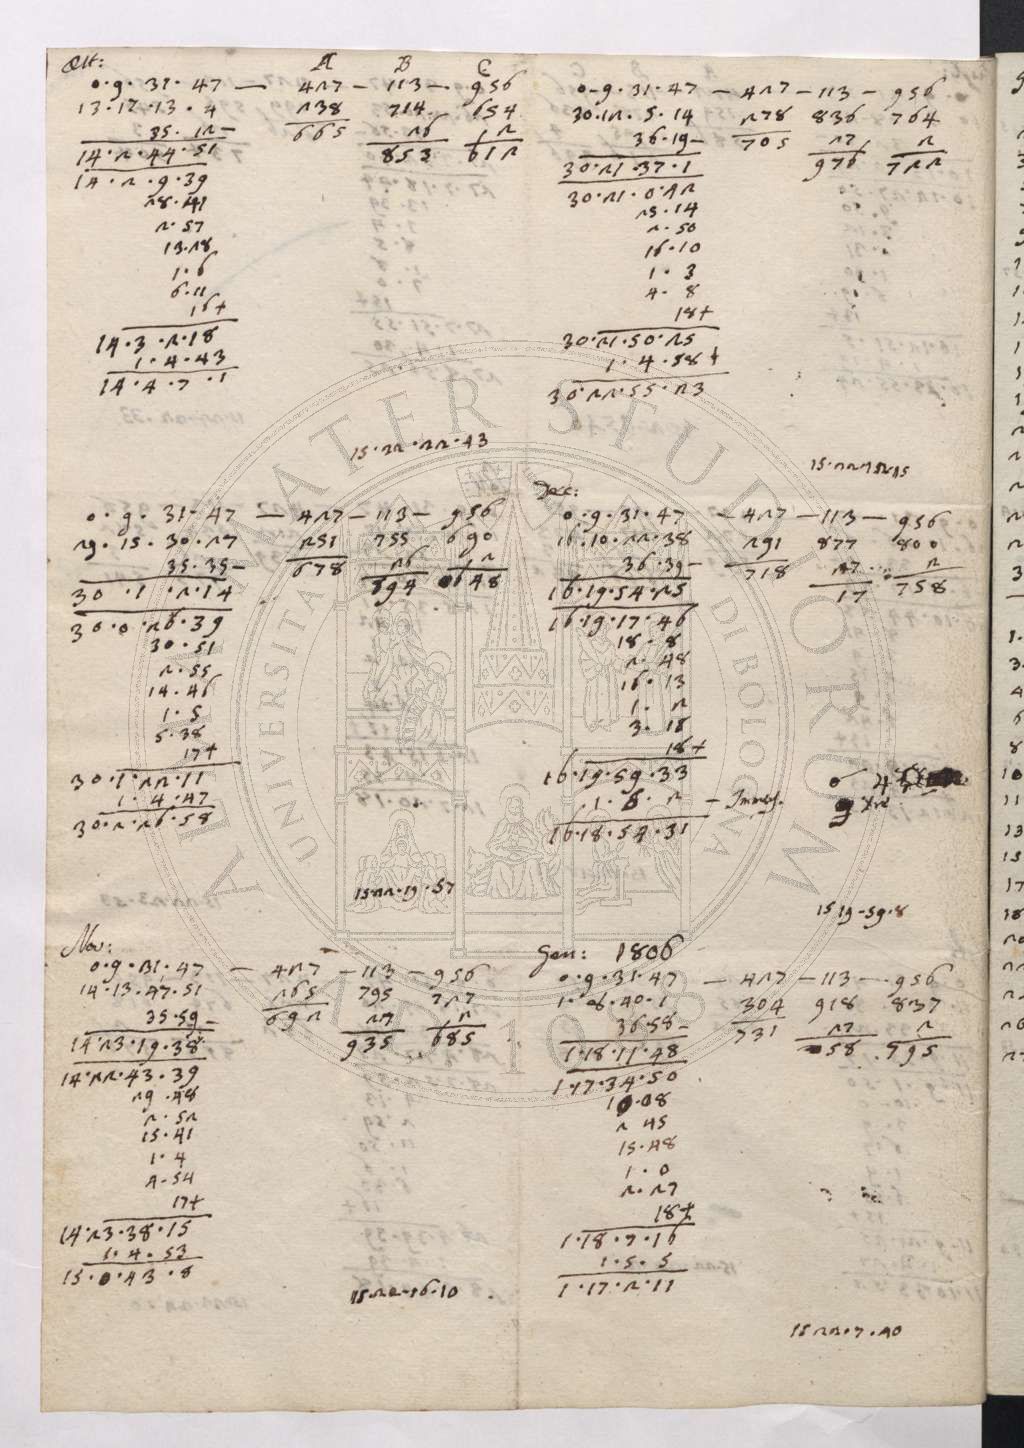 Ott: A B C
0·9·31·47 — 427 — 113 — 956
13·17·13·4 238 714 654
35·12 - 665 26 2
14·2·44·51 853 612
14·2·9·39
28·41
2·57
13·28
1·6
6·11
16+
14·3·2·18
1·4·43
14·4·7·1
15·22·22·43
0·9·31·47 — 427 — 113 — 956
29·15·30·27 251 755 690
35·35 - 678 26 2
30·1·2·14 894 648
30·0·26·39
30·51
2·55
14·46
1·5
5·38
17+
30·1·22·11
1·4·47
30·2·26·58
15·22·19·57
Nov:
0·9·31·47 — 427 — 113 — 956
14·13·47·51 265 795 727
35·59 - 692 27 2
14·23·19·38 935 685
14·22·43·39
29·48
2·52
15·41
1·4
4·54
17+
14·23·38·15
1·4·53
15·0·43·8
15·22·16·10
0·9·31·47 — 427 — 113 — 956
30·12·5·14 278 836 764
36·19 - 705 27 2
30·21·37·1 976 722
30·21·0·42
25·14
2·50
16·10
1·3
4·8
18+
30·21·50·25
1·4·58+
30·22·55·23
15·22·12·15
Dec:
0·9·31·47 — 427 — 113 — 956
16·10·22·38 291 877 800
36·39 - 718 27 2
16·19·54·25 17 758
16·19·17·46
18·8
2·48
16·13
1·2
3·18
18+
16·19·59·33
1·5·2 — Immers.
16·18·54·31
15·19·59·8
Gen: 1806
0·9·31·47 — 427 — 113 — 956
1·8·40·1 304 918 837
36·58 - 731 27 2
1·18·11·48 58 795
1·17·34·50
10·08
2·45
15·48
1·0
2·27
18+
1·18·7·16
1·5·5
1·17·2·11
15·22·7·40
ALMA MATER STUDIORUM
UNIVERSITA DI BOLOGNA
A.D. 1088